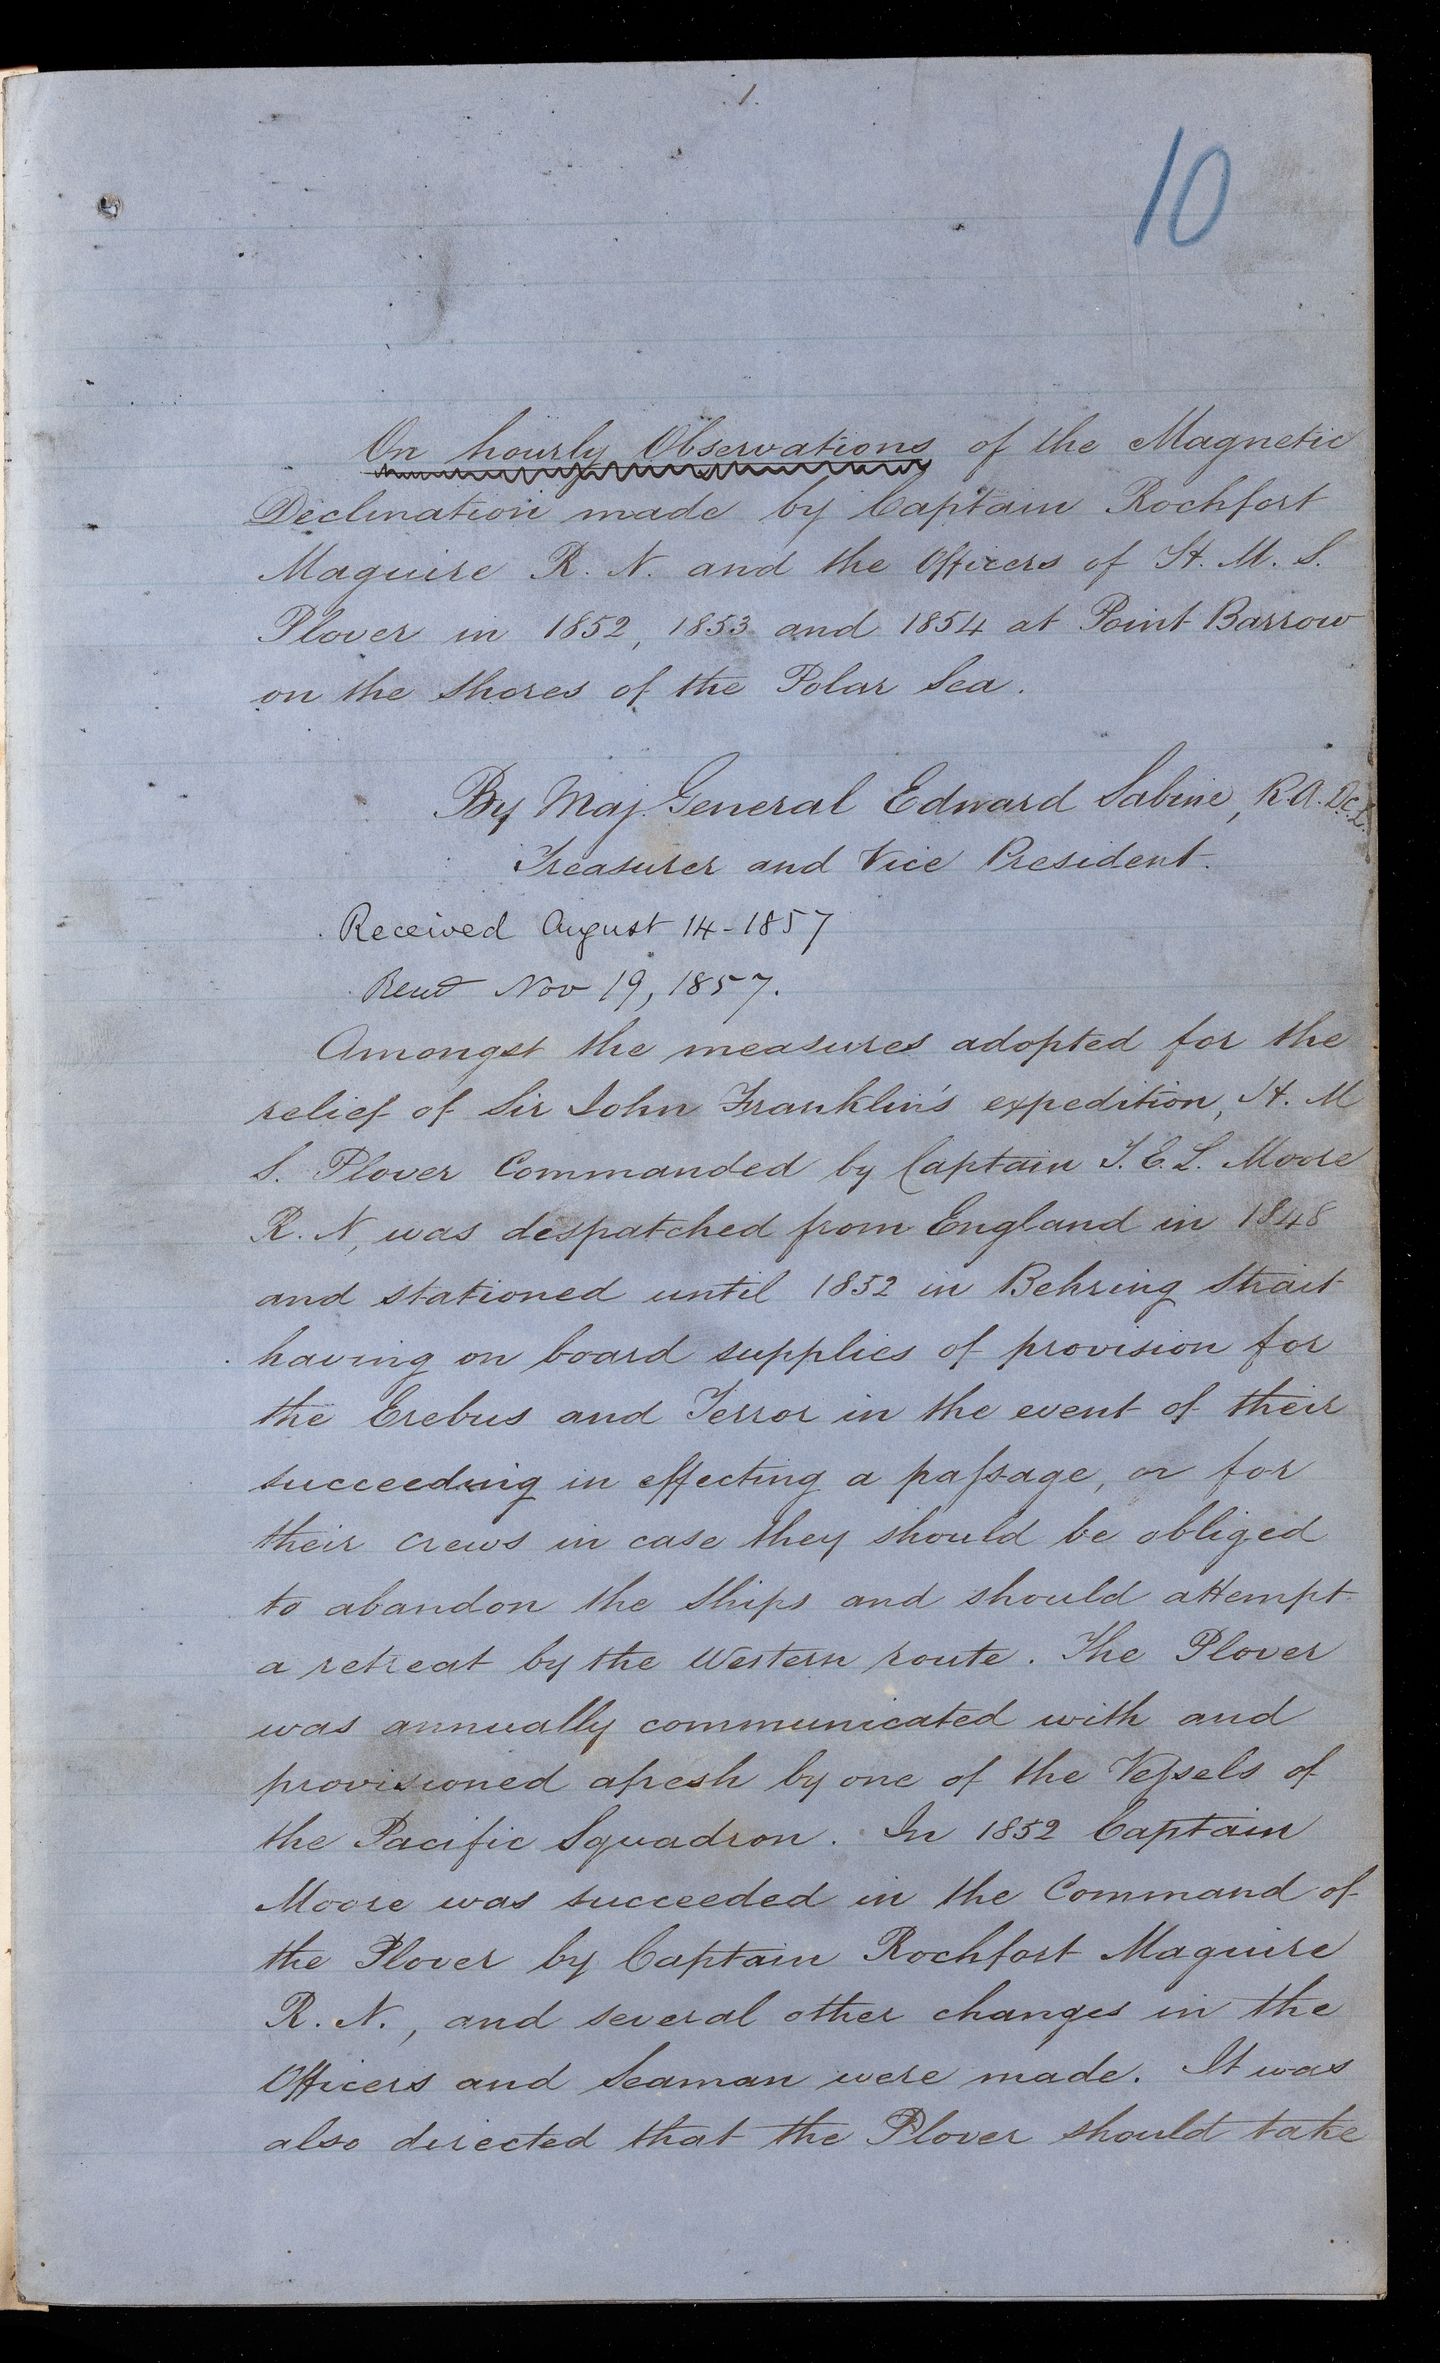 1.
10
On hourly Observations of the Magnetic
Declination made by Captain Rochfort
Maguire R. N. and the Officers of H. M. S.
Plover in 1852, 1853 and 1854 at Point Barrow
on the shores of the Polar Sea.
By Maj. General Edward Sabine, R.A. D.C.L.
Treasurer and Vice President.
Received August 14 - 1857
Read Nov 19, 1857.
Amongst the measures adopted for the
relief of Sir John Franklin's expedition, H. M
S. Plover Commanded by Captain T. E. L. Moore
R. N, was despatched from England in 1848
and stationed until 1852 in Behring Strait
having on board supplies of provision for
the Erebus and Terror in the event of their
succeeding in effecting a paſsage, or for
their crews in case they should be obliged
to abandon the Ships and should attempt
a retreat by the Western route. The Plover
was annually communicated with and
provisioned afresh by one of the Veſsels of
the Pacific Squadron. In 1852 Captain
Moore was succeeded in the Command of
the Plover by Captain Rochfort Maguire
R. N., and several other changes in the
Officers and Seaman were made. It was
also directed that the Plover should take